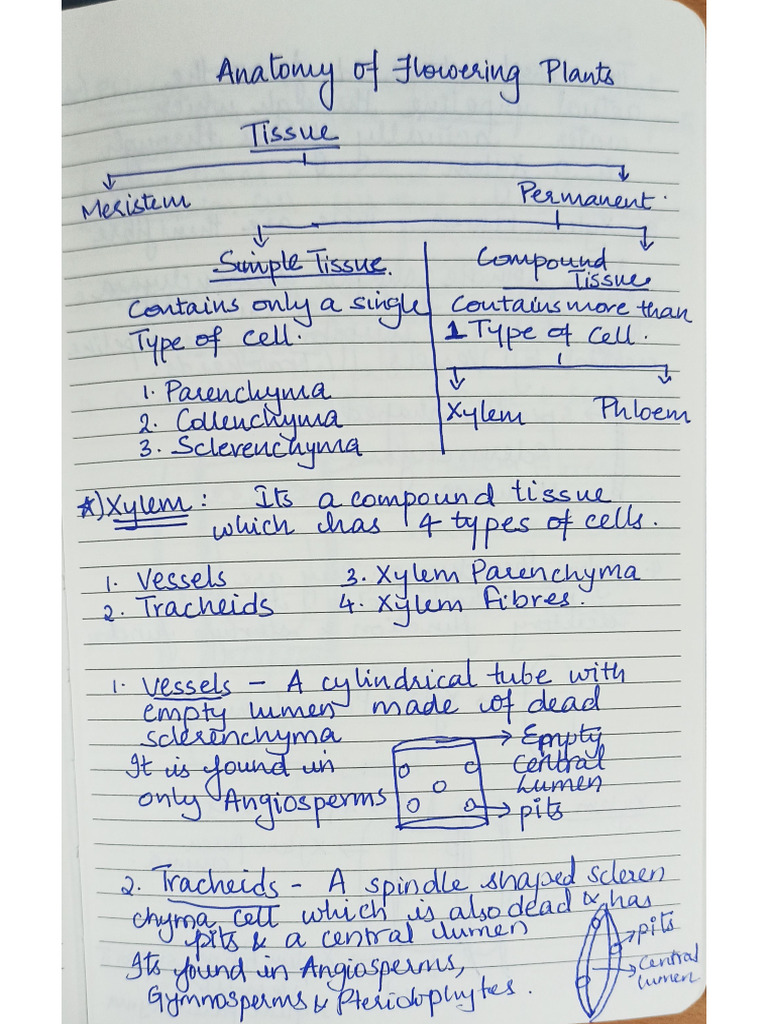 Anatomy of Flowering Plants
Tissue
Meristem
Permanent.
Simple Tissue.
Contains only a single
Type of cell.
1. Parenchyma
2. Collenchyma
3. Sclerenchyma
Compound
Tissue
Contains more than
1 Type of cell.
Xylem
Phloem
*) Xylem: Its a compound tissue
which has 4 types of cells.
1. Vessels 3. Xylem Parenchyma
2. Tracheids 4. Xylem Fibres.
1. Vessels - A cylindrical tube with
empty lumen made of dead
sclerenchyma
It is found in
only Angiosperms
Empty
Central
Lumen
pits
2. Tracheids - A spindle shaped scleren
chyma cell which is also dead & has
pits & a central lumen
Its found in Angiosperms,
Gymnosperms & Pteridophytes.
pits
Central
lumen